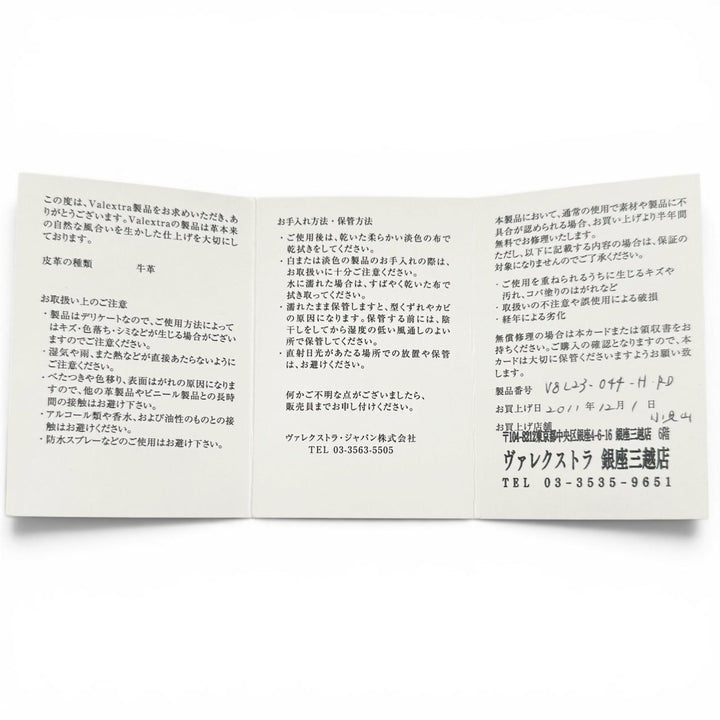 この度は、Valextra製品をお求めいただき、あ
りがとうございます。Valextraの製品は革本来
の自然な風合いを生かした仕上げを大切にし
ております。
皮革の種類　　牛革
お取扱い上のご注意
・製品はデリケートなので、ご使用方法によって
はキズ・色落ち・シミなどが生じる場合がござい
ますのでご注意ください。
・湿気や雨、また熱などが直接あたらないように
ご注意ください。
・べたつきや色移り、表面はがれの原因になりま
すので、他の革製品やビニール製品との長時
間の接触はお避け下さい。
・アルコール類や香水、および油性のものとの接
触はお避けください。
・防水スプレーなどのご使用はお避け下さい。
お手入れ方法・保管方法
・ご使用後は、乾いた柔らかい淡色の布で
乾拭きをしてください。
・白または淡色の製品のお手入れの際は、
お取扱いに十分ご注意ください。
水に濡れた場合は、すばやく乾いた布で
拭き取ってください。
・濡れたまま保管しますと、型くずれやカビ
の原因になります。保管する前には、陰
干しをしてから湿度の低い風通しのよい
所で保管してください。
・直射日光があたる場所での放置や保管
は、お避けください。
何かご不明な点がございましたら、
販売員までお申し付けください。
ヴァレクストラ・ジャパン株式会社
TEL 03-3563-5505
本製品において、通常の使用で素材や製品に不
具合が認められる場合、お買い上げより半年間
無料でお修理いたします。
ただし、以下に記載する内容の場合は、保証の
対象になりませんのでご了承ください。
・ご使用を重ねられるうちに生じるキズや
汚れ、コバ塗りのはがれなど
・取扱いの不注意や誤使用による破損
・経年による劣化
無償修理の場合は本カードまたは領収書をお
持ちください。ご購入の確認となりますので、本
カードは大切に保管くださいますようお願い致
します。
製品番号　V8L23-044-H-RD
お買上げ日 2011年12月1日
小見山
お買上げ店舗
〒104-8212東京都中央区銀座4-6-16 銀座三越店 6階
ヴァレクストラ 銀座三越店
TEL 03-3535-9651